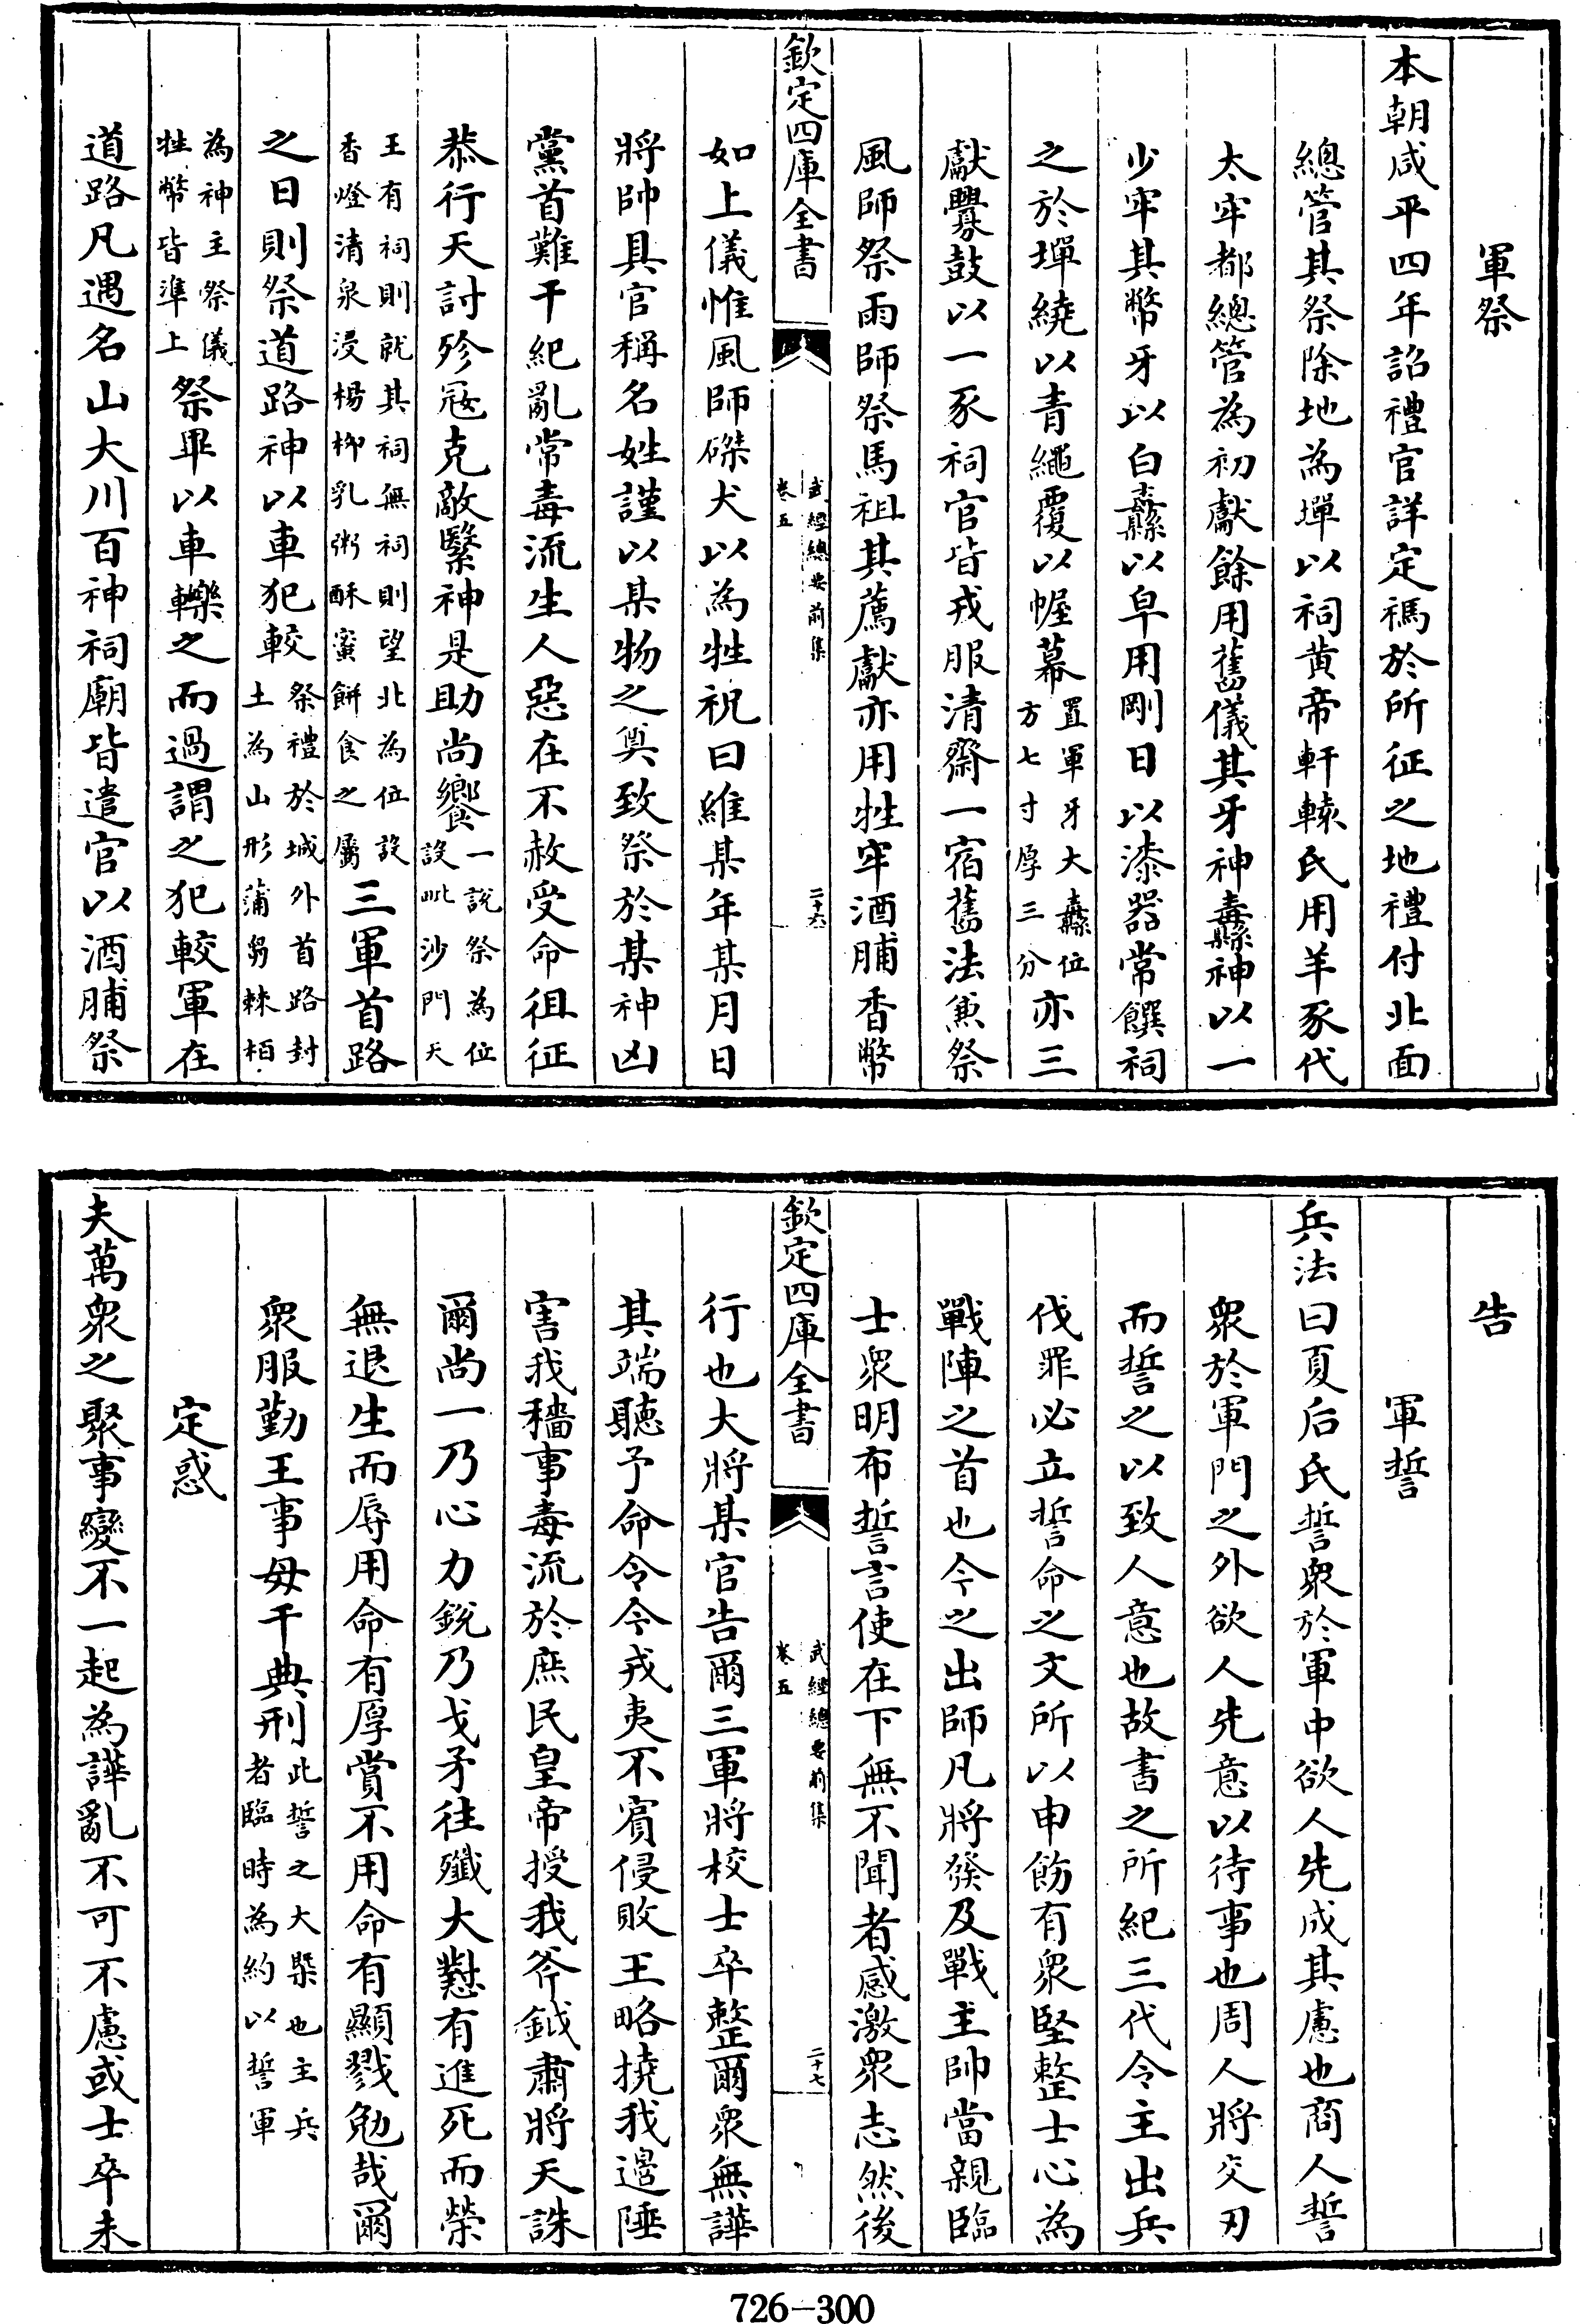 軍祭
本朝咸平四年詔禮官詳定禡於所征之地禮付北面
總管其祭除地為墠以祠黄帝軒轅氏用羊豕代
太牢都總管為初獻餘用舊儀其牙神纛神以一
少牢其幣牙以白纛以皁用剛日以漆器常饌祠
之於墠繞以青繩覆以幄幕置軍牙大纛位方七寸厚三分亦三
獻釁鼓以一豕祠官皆戎服清齋一宿舊法兼祭
風師祭雨師祭馬祖其薦獻亦用牲牢酒脯香幣
欽定四庫全書
武經總要前集
卷五
二十六
如上儀惟風師磔犬以為牲祝曰維某年某月日
將帥具官稱名姓謹以某物之奠致祭於某神凶
黨首難干紀亂常毒流生人惡在不赦受命徂征
恭行天討殄寇克敵繄神是助尚饗一說祭為位設毗沙門天
王有祠則就其祠無祠則望北為位設香燈清泉浸楊栁乳粥酥蜜餅食之屬三軍首路
之日則祭道路神以車犯較祭禮於城外首路封土為山形蒲芻棘栢
為神主祭儀牲幣皆準上祭畢以車轢之而過謂之犯較軍在
道路凡遇名山大川百神祠廟皆遣官以酒脯祭
告
軍誓
兵法曰夏后氏誓衆於軍中欲人先成其慮也商人誓
衆於軍門之外欲人先意以待事也周人將交刃
而誓之以致人意也故書之所紀三代令主出兵
伐罪必立誓命之文所以申飭有衆堅整士心為
戰陣之首也今之出師凡將發及戰主帥當親臨
士衆明布誓言使在下無不聞者感激衆志然後
欽定四庫全書
武經總要前集
卷五
二十七
行也大將某官告爾三軍將校士卒整爾衆無譁
其端聽予命令今戎夷不賓侵敗王略撓我邊陲
害我穡事毒流於庶民皇帝授我斧鉞肅將天誅
爾尚一乃心力鋭乃戈矛往殲大懟有進死而榮
無退生而辱用命有厚賞不用命有顯戮勉哉爾
衆服勤王事毋干典刑此誓之大槩也主兵者臨時為約以誓軍
定惑
夫萬衆之聚事變不一起為譁亂不可不慮或士卒未
726-300